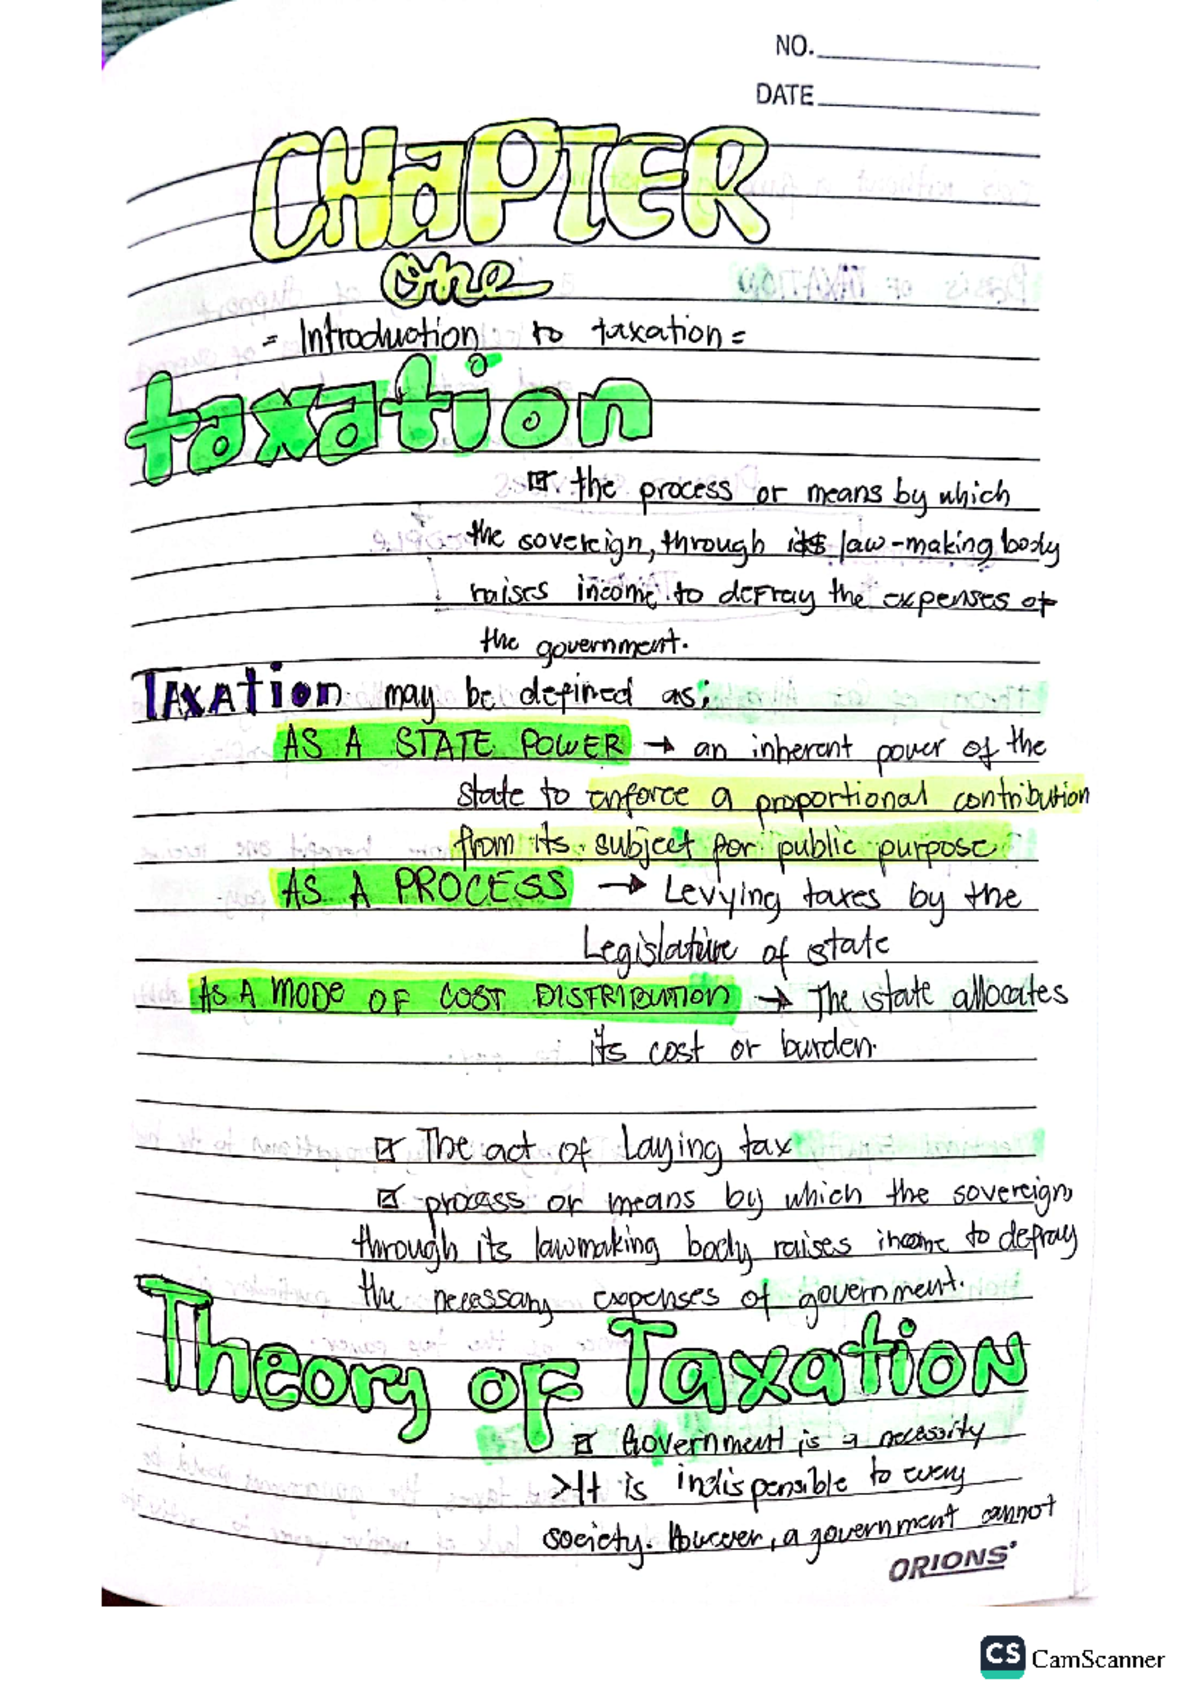 NO.
DATE
CHAPTER
one
= Introduction to taxation =
taxation
the process or means by which
the sovereign, through its law-making body
raises income to defray the expenses of
the government.
TAXATION may be defined as;
AS A STATE POWER → an inherent power of the
state to enforce a proportional contribution
from its subject for public purpose
AS A PROCESS → Levying taxes by the
Legislature of state
AS A MODE OF COST DISTRIBUTION → The state allocates
its cost or burden.
The act of Laying tax
process or means by which the sovereign,
through its lawmaking body raises income to defray
the necessary expenses of government.
Theory of Taxation
Government is a necessity
>It is indispensible to every
society. However, a government cannot
ORIONS
CS CamScanner